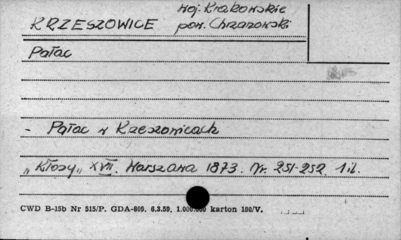 Woj. Krakowskie
KRZESZOWICE pow. Chrzanowski
Pałac
- Pałac w Krzeszowicach
"Kłosy" XVII. Warszawa 1873. Nr. 251-252. 1 il.
CWD B-15b Nr 515/P. GDA-809. 6.3.59, 1.000.000 karton 180/V.